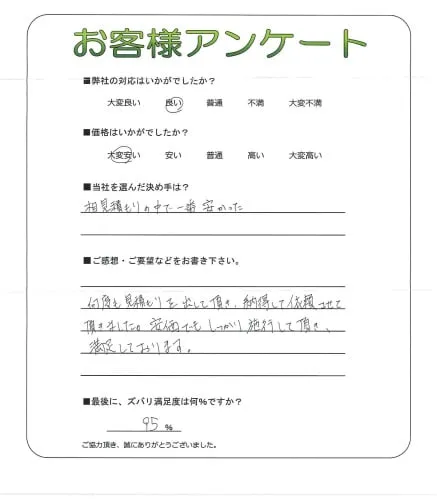 お客様アンケート
■弊社の対応はいかがでしたか?
大変良い 良い 普通 不満 大変不満
■価格はいかがでしたか?
大変安い 安い 普通 高い 大変高い
■当社を選んだ決め手は?
相見積もりの中で一番安かった
■ご感想・ご要望などをお書き下さい。
何度も見積もりを出して頂き、納得して依頼させて
頂きました。安価でもしっかり施行して頂き、
満足しております。
■最後に、ズバリ満足度は何%ですか?
95 %
ご協力頂き、誠にありがとうございました。